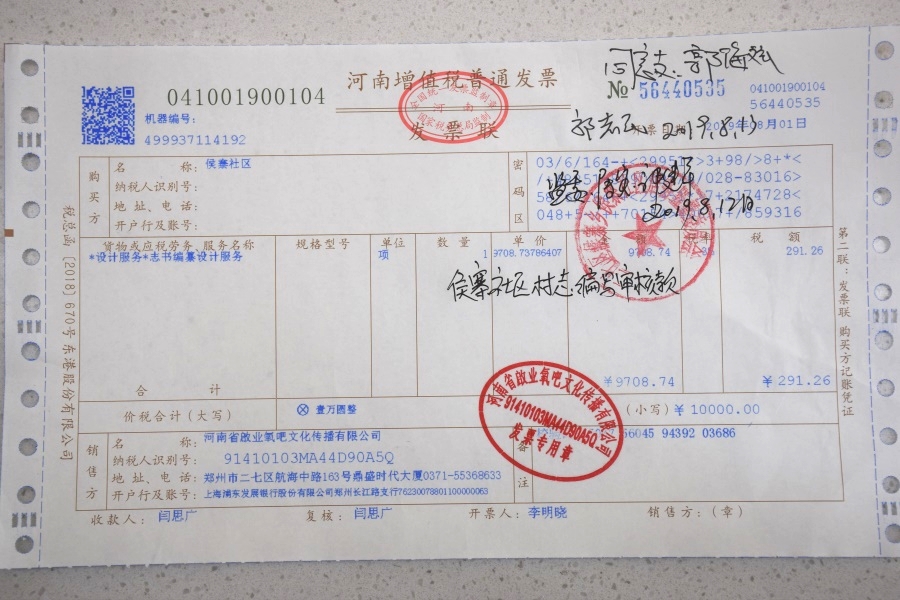 河南增值税普通发票
发票联
041001900104
机器编号:
499937114192
同意支:郭海斌
№ 56440535
041001900104
56440535
2019.8.
08月01日
购买方
名 称: 侯寨社区
纳税人识别号:
地 址、电 话:
开户行及账号:
密码区
03/6/164-+<2995
>3+98/>8+*<
/028-83016>
7+2174728<
048+5
/+/859316
2019.8.12日
货物或应税劳务、服务名称 规格型号 单位 数 量 单 价 税 额
*设计服务*志书编纂设计服务 项 1 9708.73786407 9708.74 291.26
侯寨社区村志编写审核款
合 计 ¥9708.74 ¥ 291.26
价税合计（大写） ⊗ 壹万圆整 （小写）¥ 10000.00
销售方
名 称: 河南省啟业氧吧文化传播有限公司
纳税人识别号: 91410103MA44D90A5Q
地 址、电 话: 郑州市二七区航海中路163号鼎盛时代大厦0371-55368633
开户行及账号: 上海浦东发展银行股份有限公司郑州长江路支行76230078801100000063
备注
56045 94392 03686
河南省啟业氧吧文化传播有限公司
91410103MA44D90A5Q
发票专用章
收款人: 闫思广 复核: 闫思广 开票人: 李明晓 销售方:（章）
税总函〔2018〕670号东港股份有限公司
第二联:发票联 购买方记账凭证